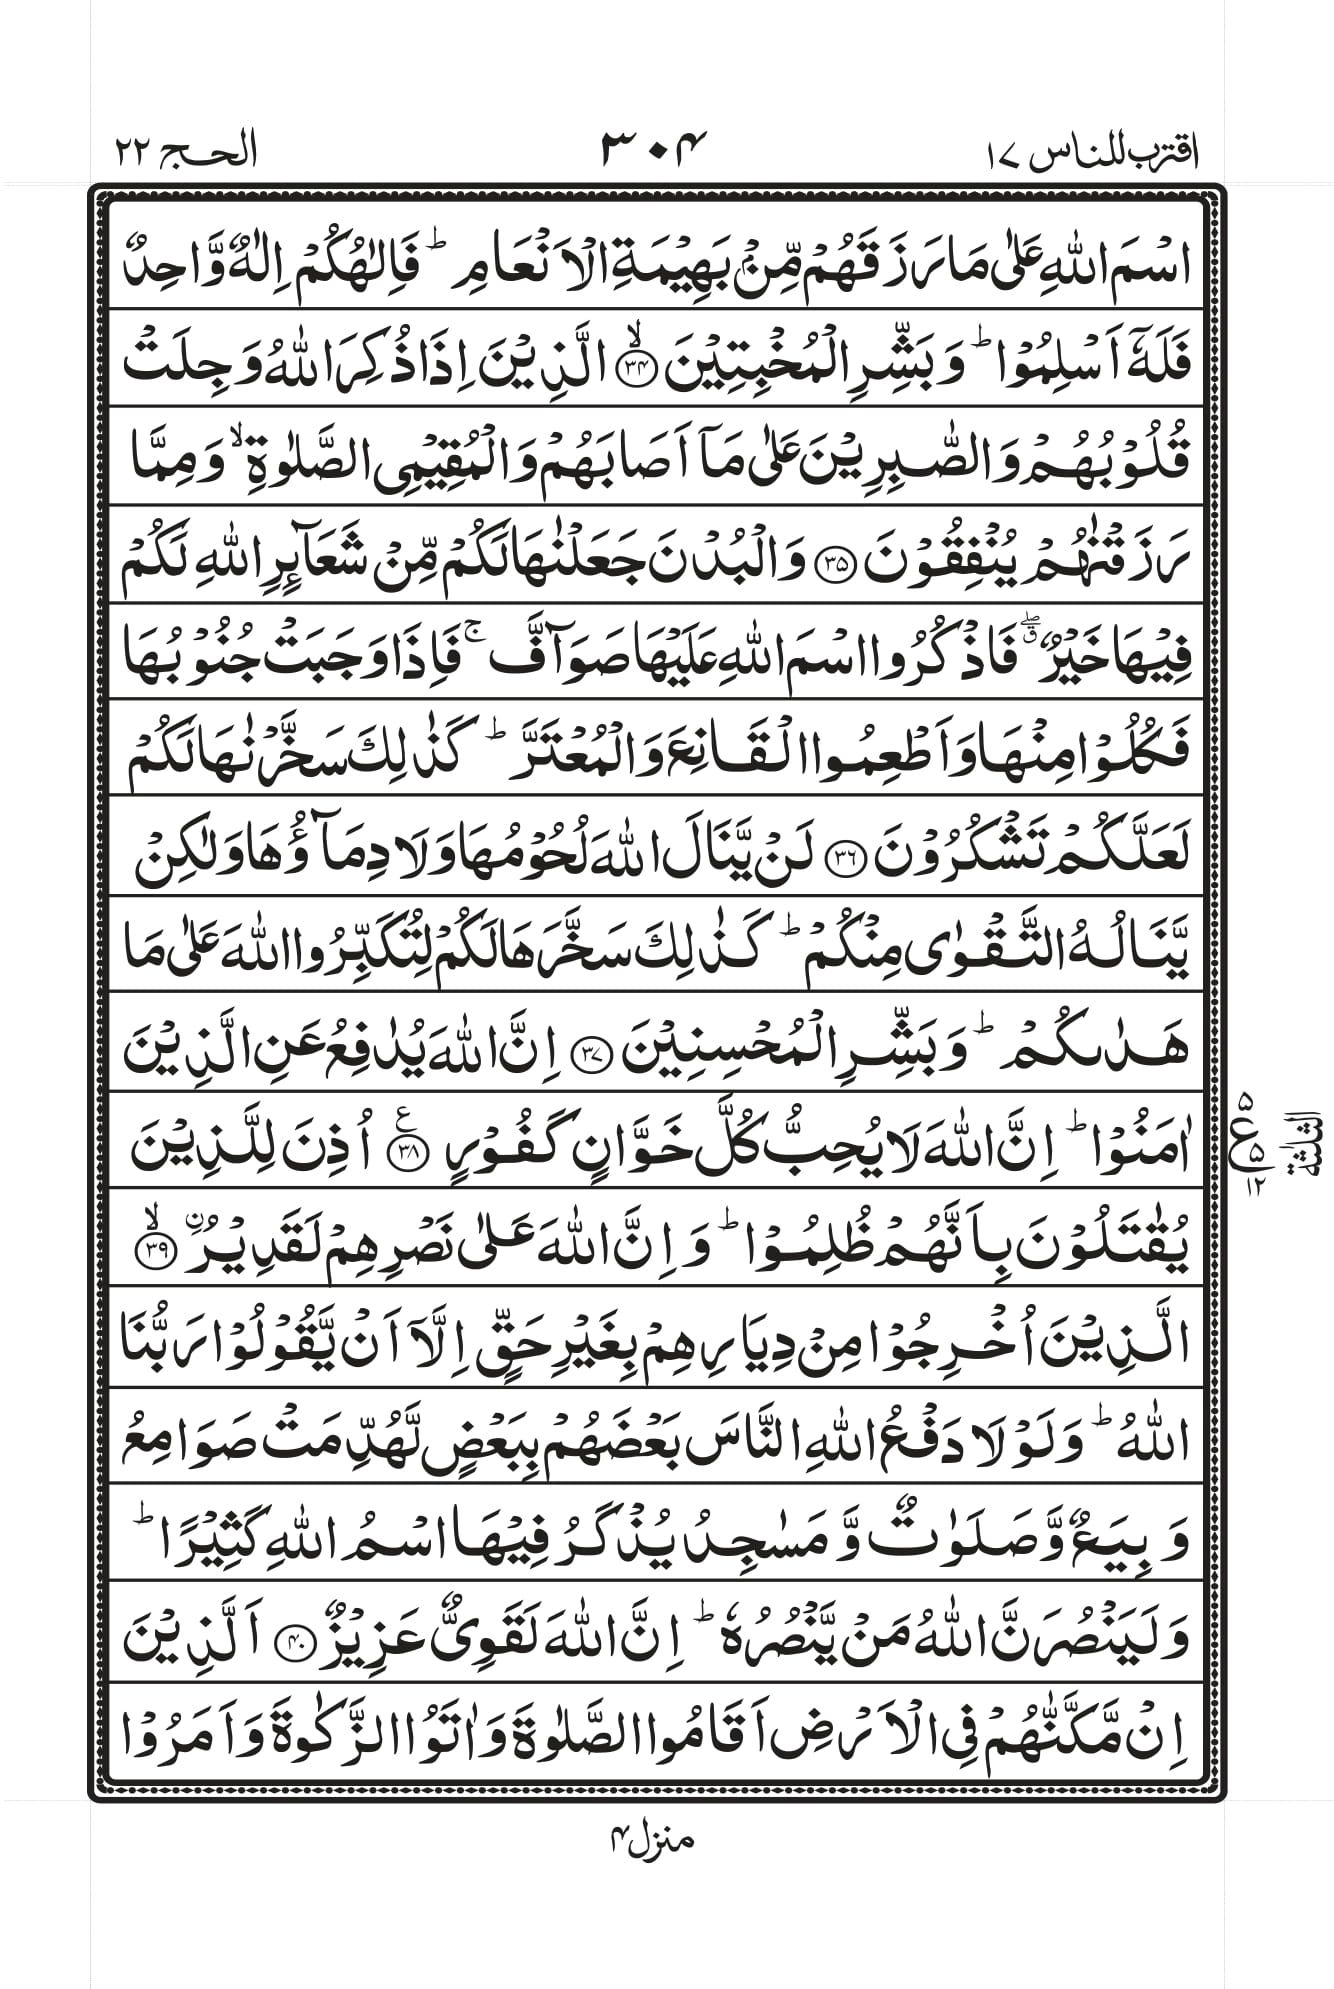 اقترب للناس ١٧
٣٠۴
الحج ٢٢
اسْمَ اللّٰهِ عَلٰى مَا رَزَقَهُمْ مِّنْۢ بَهِيْمَةِ الْاَنْعَامِ ؕ فَاِلٰهُكُمْ اِلٰهٌ وَّاحِدٌ
فَلَهٗۤ اَسْلِمُوْا ؕ وَبَشِّرِ الْمُخْبِتِيْنَ ۙ﴿۳۴﴾ الَّذِيْنَ اِذَا ذُكِرَ اللّٰهُ وَجِلَتْ
قُلُوْبُهُمْ وَالصّٰبِرِيْنَ عَلٰى مَاۤ اَصَابَهُمْ وَالْمُقِيْمِى الصَّلٰوةِ ۙ وَمِمَّا
رَزَقْنٰهُمْ يُنْفِقُوْنَ ﴿۳۵﴾ وَالْبُدْنَ جَعَلْنٰهَا لَكُمْ مِّنْ شَعَآئِرِ اللّٰهِ لَكُمْ
فِيْهَا خَيْرٌ ۖق فَاذْكُرُوا اسْمَ اللّٰهِ عَلَيْهَا صَوَآفَّ ۚ فَاِذَا وَجَبَتْ جُنُوْبُهَا
فَكُلُوْا مِنْهَا وَاَطْعِمُوا الْقَانِعَ وَالْمُعْتَرَّ ؕ كَذٰلِكَ سَخَّرْنٰهَا لَكُمْ
لَعَلَّكُمْ تَشْكُرُوْنَ ﴿۳۶﴾ لَنْ يَّنَالَ اللّٰهَ لُحُوْمُهَا وَلَا دِمَآؤُهَا وَلٰكِنْ
يَّنَالُهُ التَّقْوٰى مِنْكُمْ ؕ كَذٰلِكَ سَخَّرَهَا لَكُمْ لِتُكَبِّرُوا اللّٰهَ عَلٰى مَا
هَدٰىكُمْ ؕ وَبَشِّرِ الْمُحْسِنِيْنَ ﴿۳۷﴾ اِنَّ اللّٰهَ يُدٰفِعُ عَنِ الَّذِيْنَ
اٰمَنُوْا ؕ اِنَّ اللّٰهَ لَا يُحِبُّ كُلَّ خَوَّانٍ كَفُوْرٍ ﴿۳۸﴾ع اُذِنَ لِلَّذِيْنَ
۵
ع
۵
١٢
الثلثة
يُقٰتَلُوْنَ بِاَنَّهُمْ ظُلِمُوْا ؕ وَاِنَّ اللّٰهَ عَلٰى نَصْرِهِمْ لَقَدِيْرُ ۨ ۙ﴿۳۹﴾
الَّذِيْنَ اُخْرِجُوْا مِنْ دِيَارِهِمْ بِغَيْرِ حَقٍّ اِلَّاۤ اَنْ يَّقُوْلُوْا رَبُّنَا
اللّٰهُ ؕ وَلَوْلَا دَفْعُ اللّٰهِ النَّاسَ بَعْضَهُمْ بِبَعْضٍ لَّهُدِّمَتْ صَوَامِعُ
وَبِيَعٌ وَّصَلَوٰتٌ وَّمَسٰجِدُ يُذْكَرُ فِيْهَا اسْمُ اللّٰهِ كَثِيْرًا ؕ
وَلَيَنْصُرَنَّ اللّٰهُ مَنْ يَّنْصُرُهٗ ؕ اِنَّ اللّٰهَ لَقَوِىٌّ عَزِيْزٌ ﴿۴۰﴾ اَلَّذِيْنَ
اِنْ مَّكَّنّٰهُمْ فِى الْاَرْضِ اَقَامُوا الصَّلٰوةَ وَاٰتَوُا الزَّكٰوةَ وَاَمَرُوْا
منزل ۴